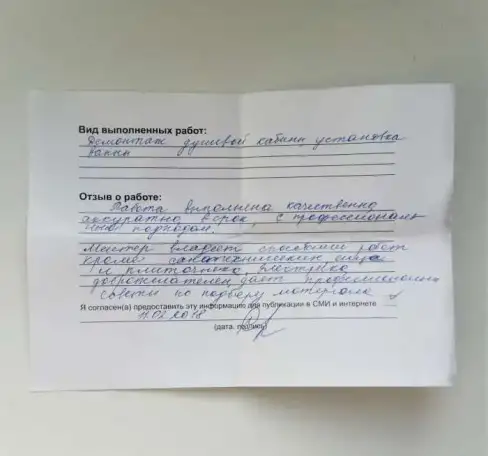 Вид выполненных работ:
Демонтаж душевой кабины установка
ванны
Отзыв о работе:
Работа выполнена качественно
аккуратно в срок, с профессиональ
ным подходом.
Мастер владеет способами работ
кроме сантехнических еще
и плиточного
доброжелателен дает профессиональные
советы по подбору материала
Я согласен(а) предоставить эту информацию для публикации в СМИ и интернете
11.02.2018
(дата, подпись)